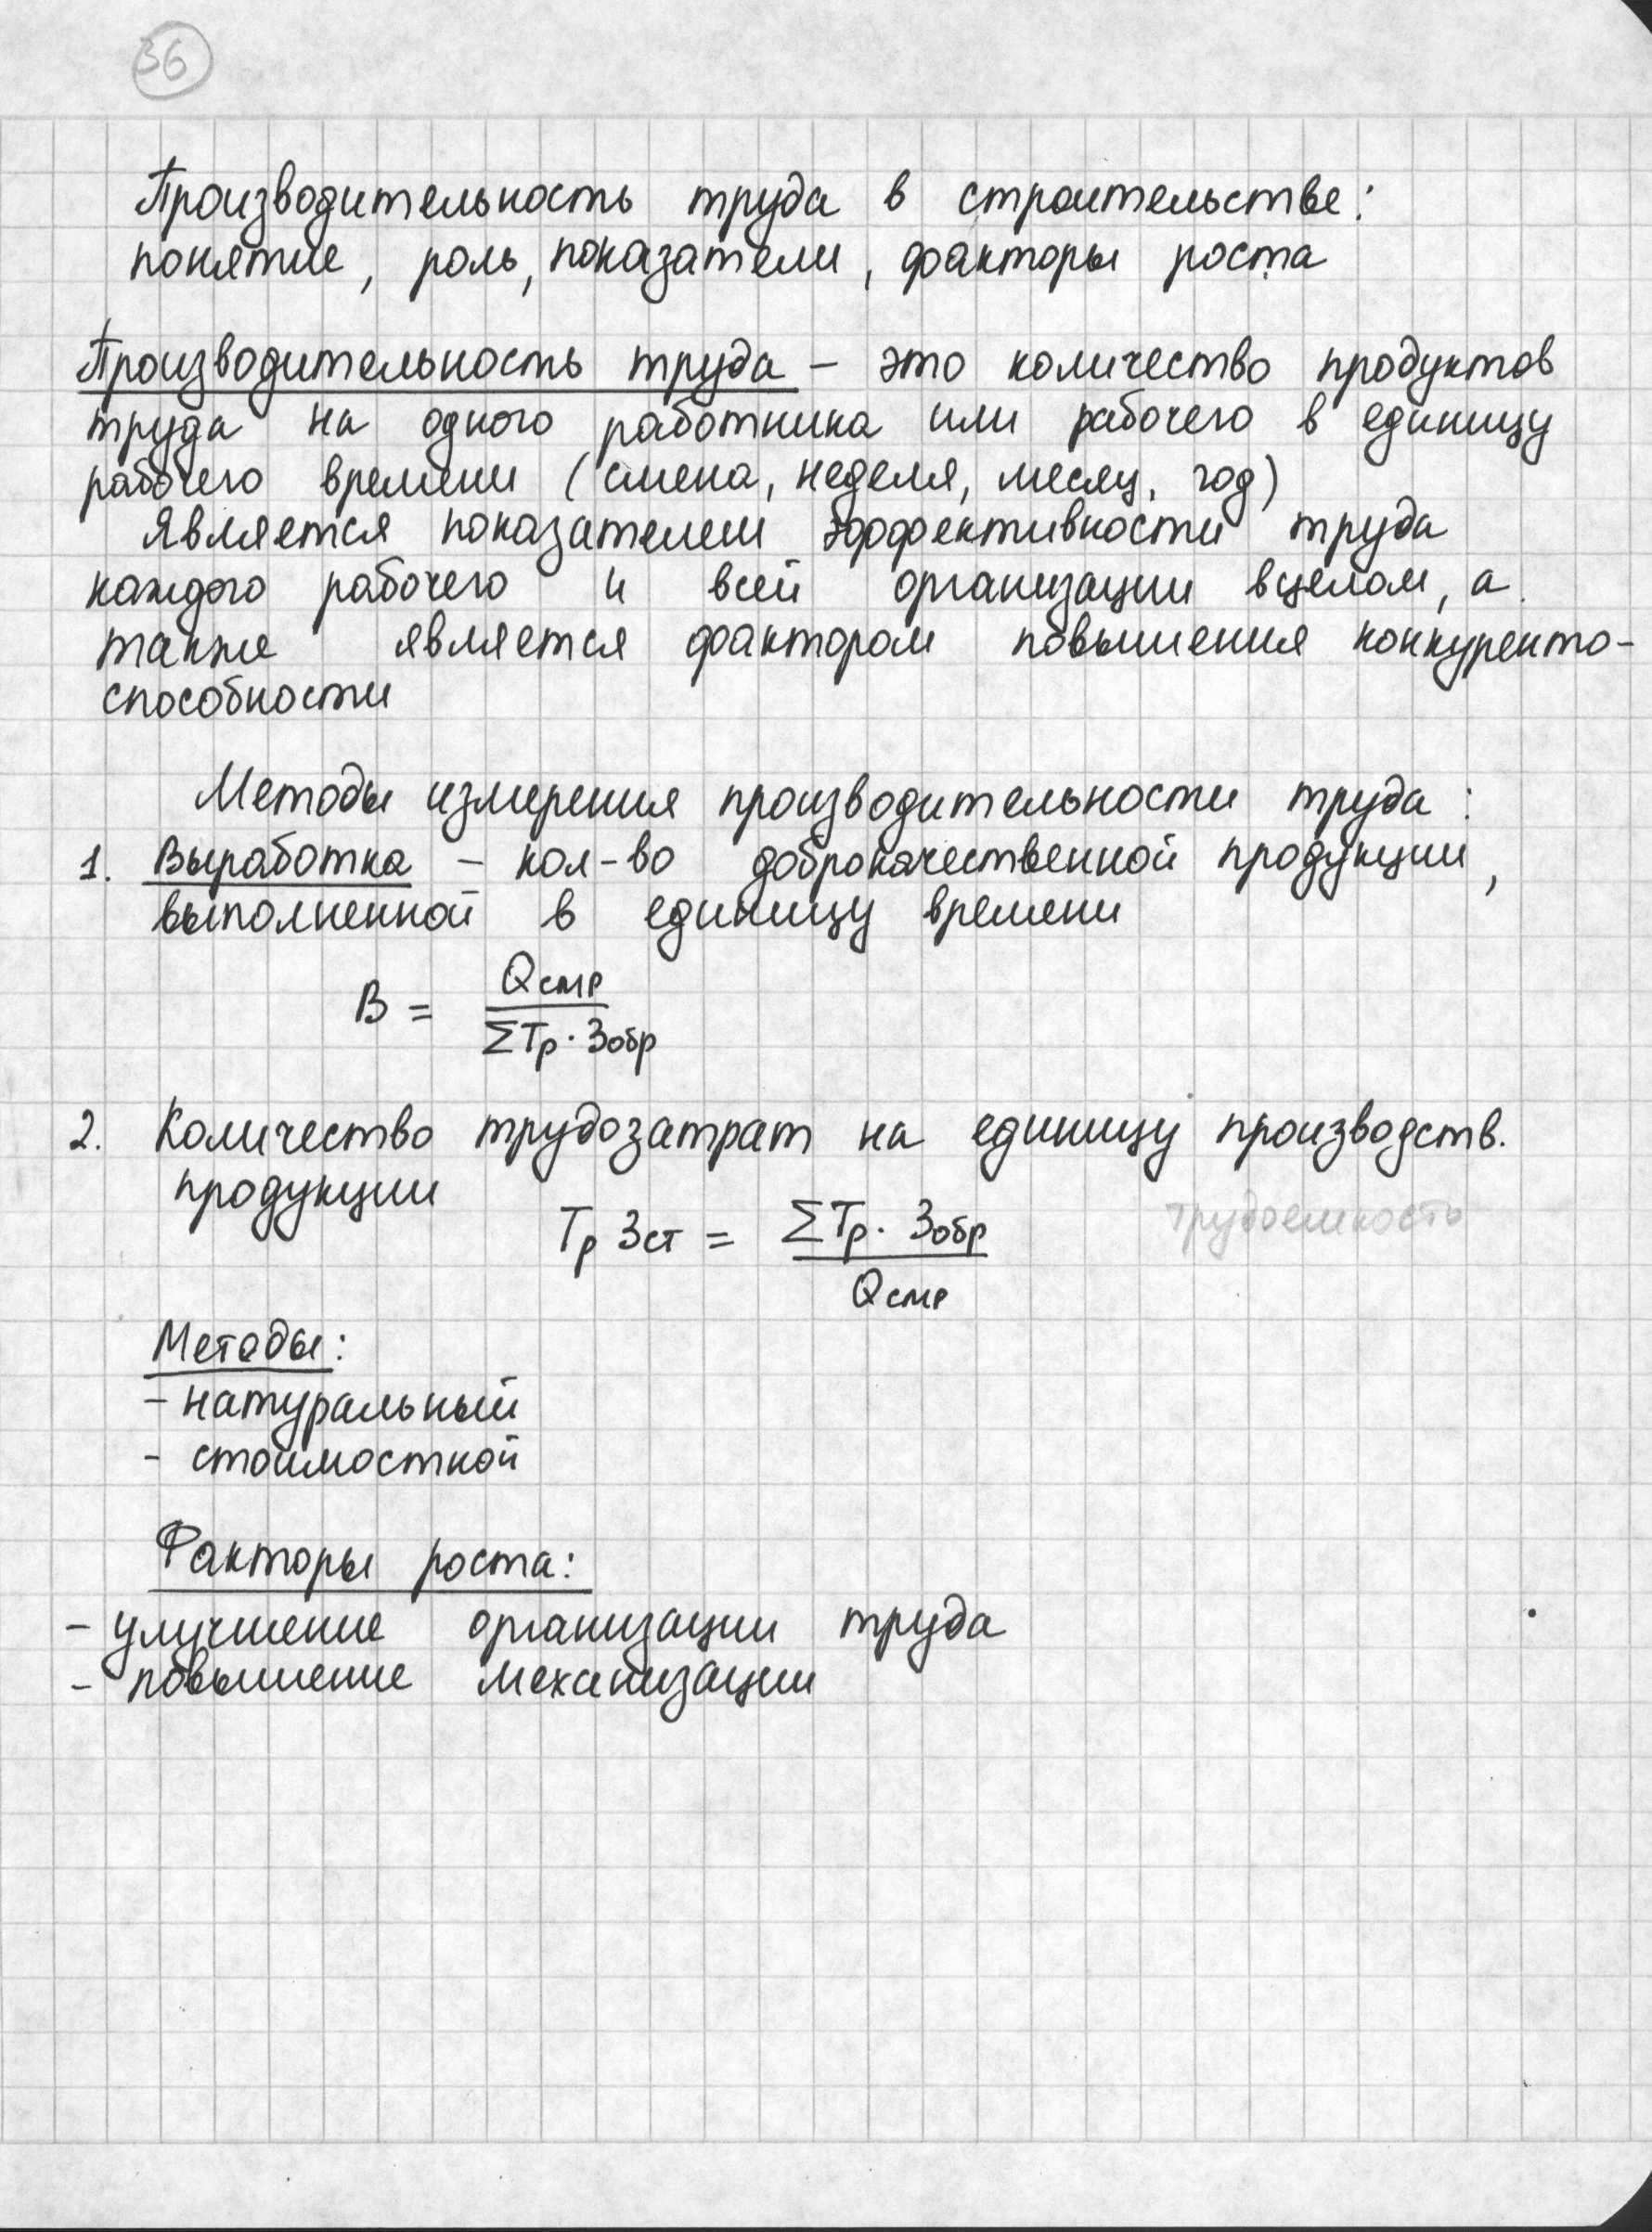 36
Производительность труда в строительстве:
понятие, роль, показатели, факторы роста
Производительность труда – это количество продуктов
труда на одного работника или рабочего в единицу
рабочего времени (смена, неделя, месяц, год)
Является показателем эффективности труда
каждого рабочего и всей организации вцелом, а
также является фактором повышения конкуренто-
способности
Методы измерения производительности труда:
1. Выработка – кол-во доброкачественной продукции,
выполненной в единицу времени
В = Qсмр / ΣТр · Зобр
2. Количество трудозатрат на единицу производств.
продукции
Тр Зст = ΣТр · Зобр / Qсмр
трудоемкость
Методы:
- натуральный
- стоимостной
Факторы роста:
- улучшение организации труда
- повышение механизации